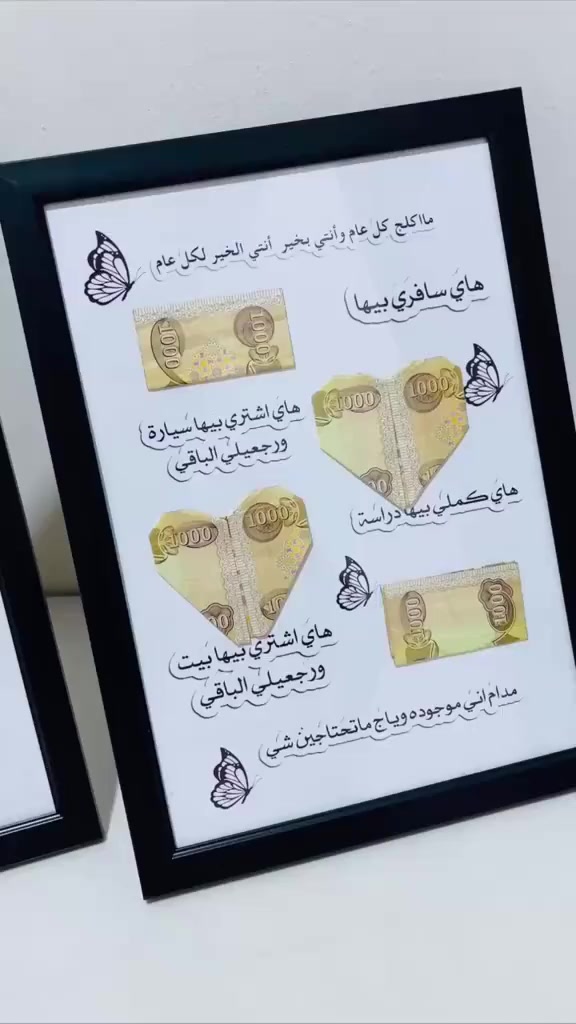 مااكلج كل عام وأنتي بخير أنتي الخير لكل عام
هاي سافري بيها
1000 1000
هاي اشتري بيها سيارة
ورجعيلي الباقي
1000 1000
هاي كملي بيها دراسة
1000 1000
هاي اشتري بيها بيت
ورجعيلي الباقي
1000 1000
مدام اني موجوده وياج ماتحتاجين شي